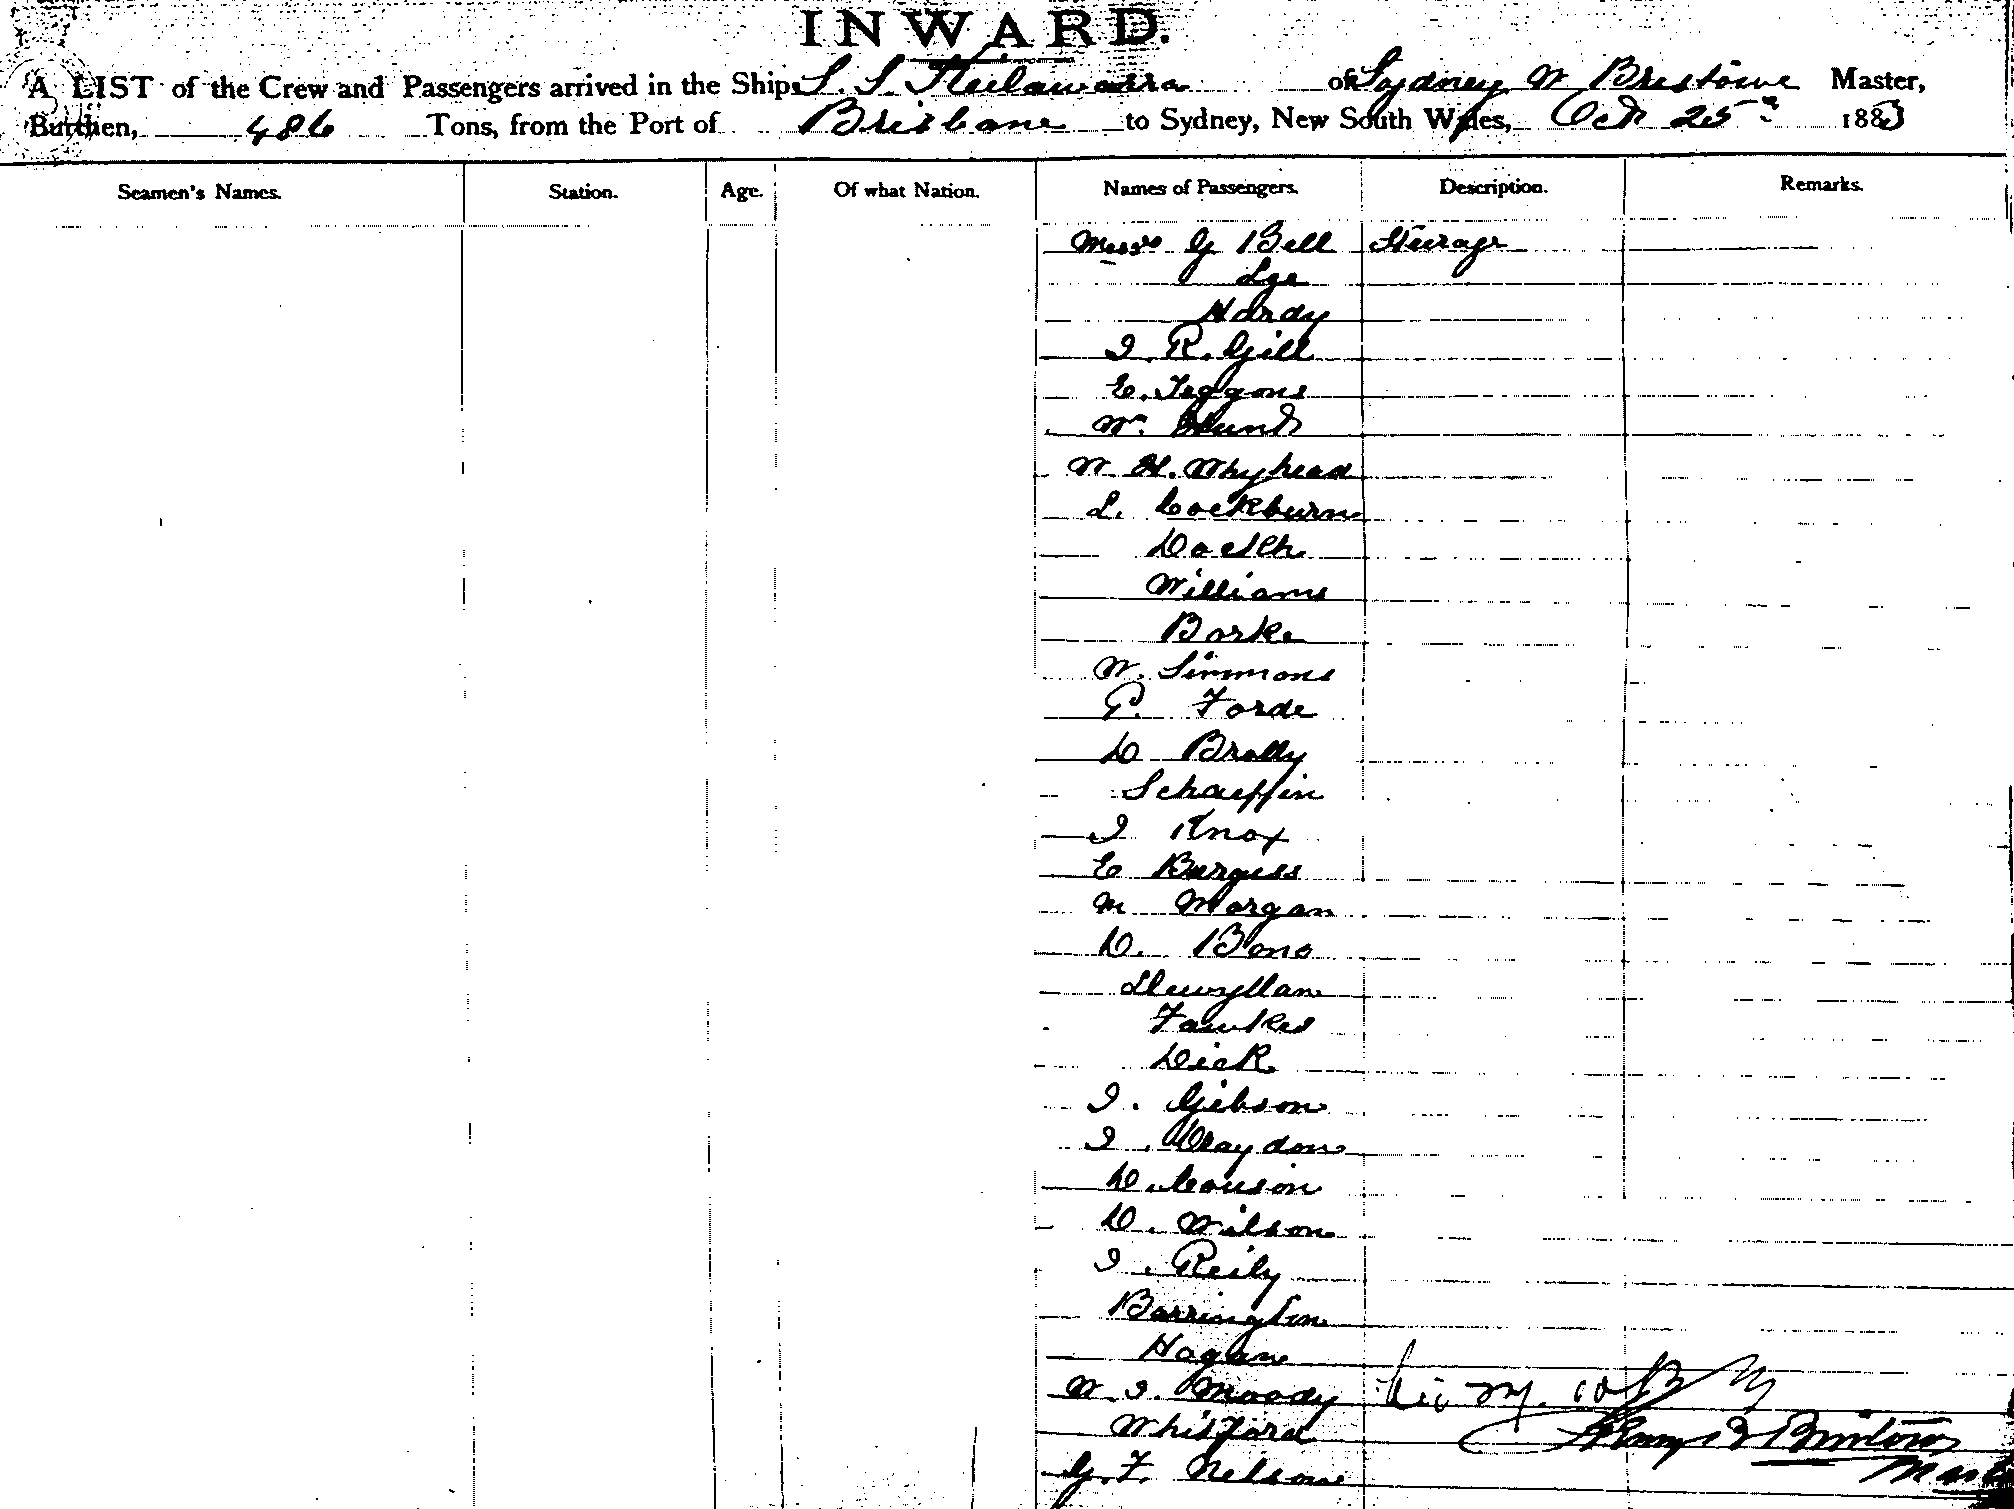 INWARD.
A LIST of the Crew and Passengers arrived in the Ship S. S. Keilawarra of Sydney W Bristowe Master,
Burthen, 486 Tons, from the Port of Brisbane to Sydney, New South Wales, Oct 25th 1883
Seamen's Names. Station. Age. Of what Nation. Names of Passengers. Description. Remarks.
Messrs G Bell Steerage
Lee
Hardy
I. R. Gill
E. Teggons
W. Hunt
W H. Whyhead
L. Cockburn
Williams
Barke
W. Simmons
P. Forde
D Brolly
Schaeffin
I Knox
E Burgess
M Morgan
D. Bono
Llewyllan
Fawkes
Dick
I. Gibson
I. Draydon
D. Couson
D. Wilson
I. Reily
Barrington
Hagan
W I. Moody
Whitford
G. F. Nelson